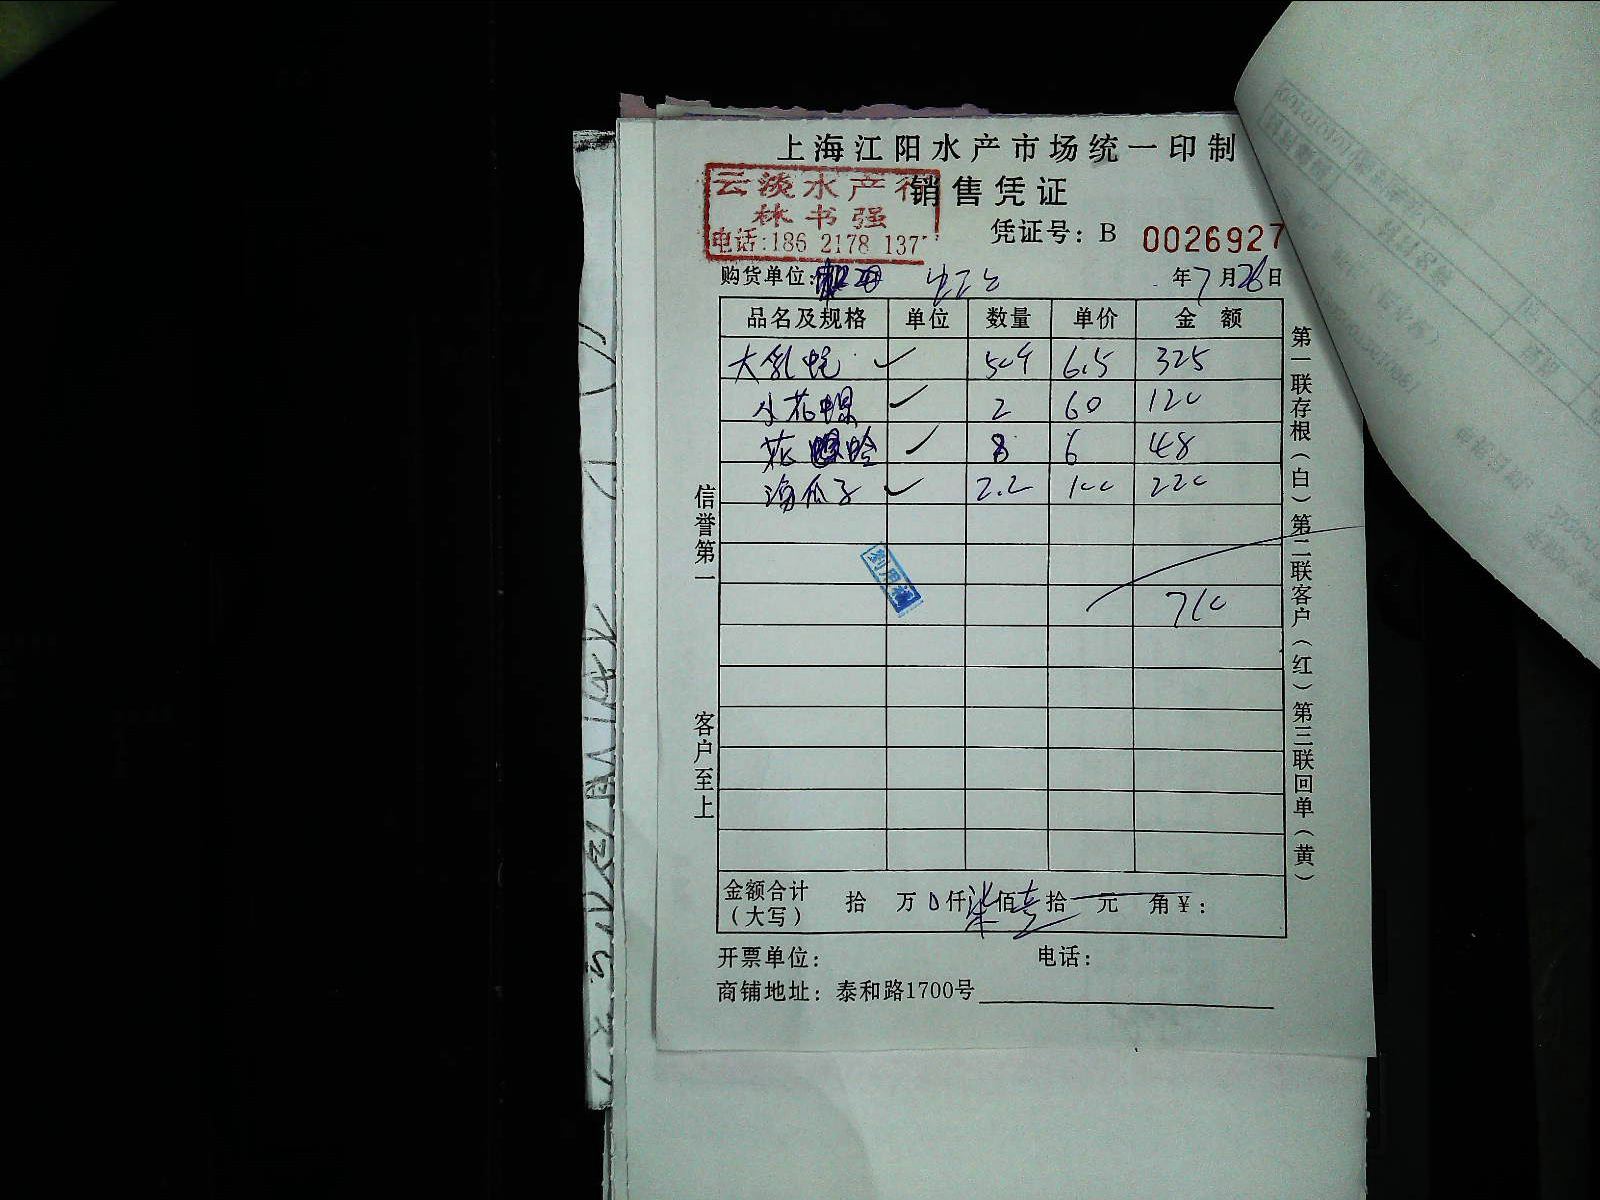 上海江阳水产市场统一印制
云淡水产行
销售凭证
林书强
电话:186 2178 137
凭证号: B 0026927
购货单位: 年7月26日
品名及规格 单位 数量 单价 金额
大乳蚝 ✓ 50个 6.5 325
小花螺 ✓ 2 60 120
花蛤 ✓ 8 6 48
海瓜子 ✓ 2.2 100 220
710
信誉第一
客户至上
第一联存根(白)第二联客户(红)第三联回单(黄)
金额合计(大写) 拾 万 0仟柒佰壹拾 元 角¥:
开票单位: 电话:
商铺地址: 泰和路1700号